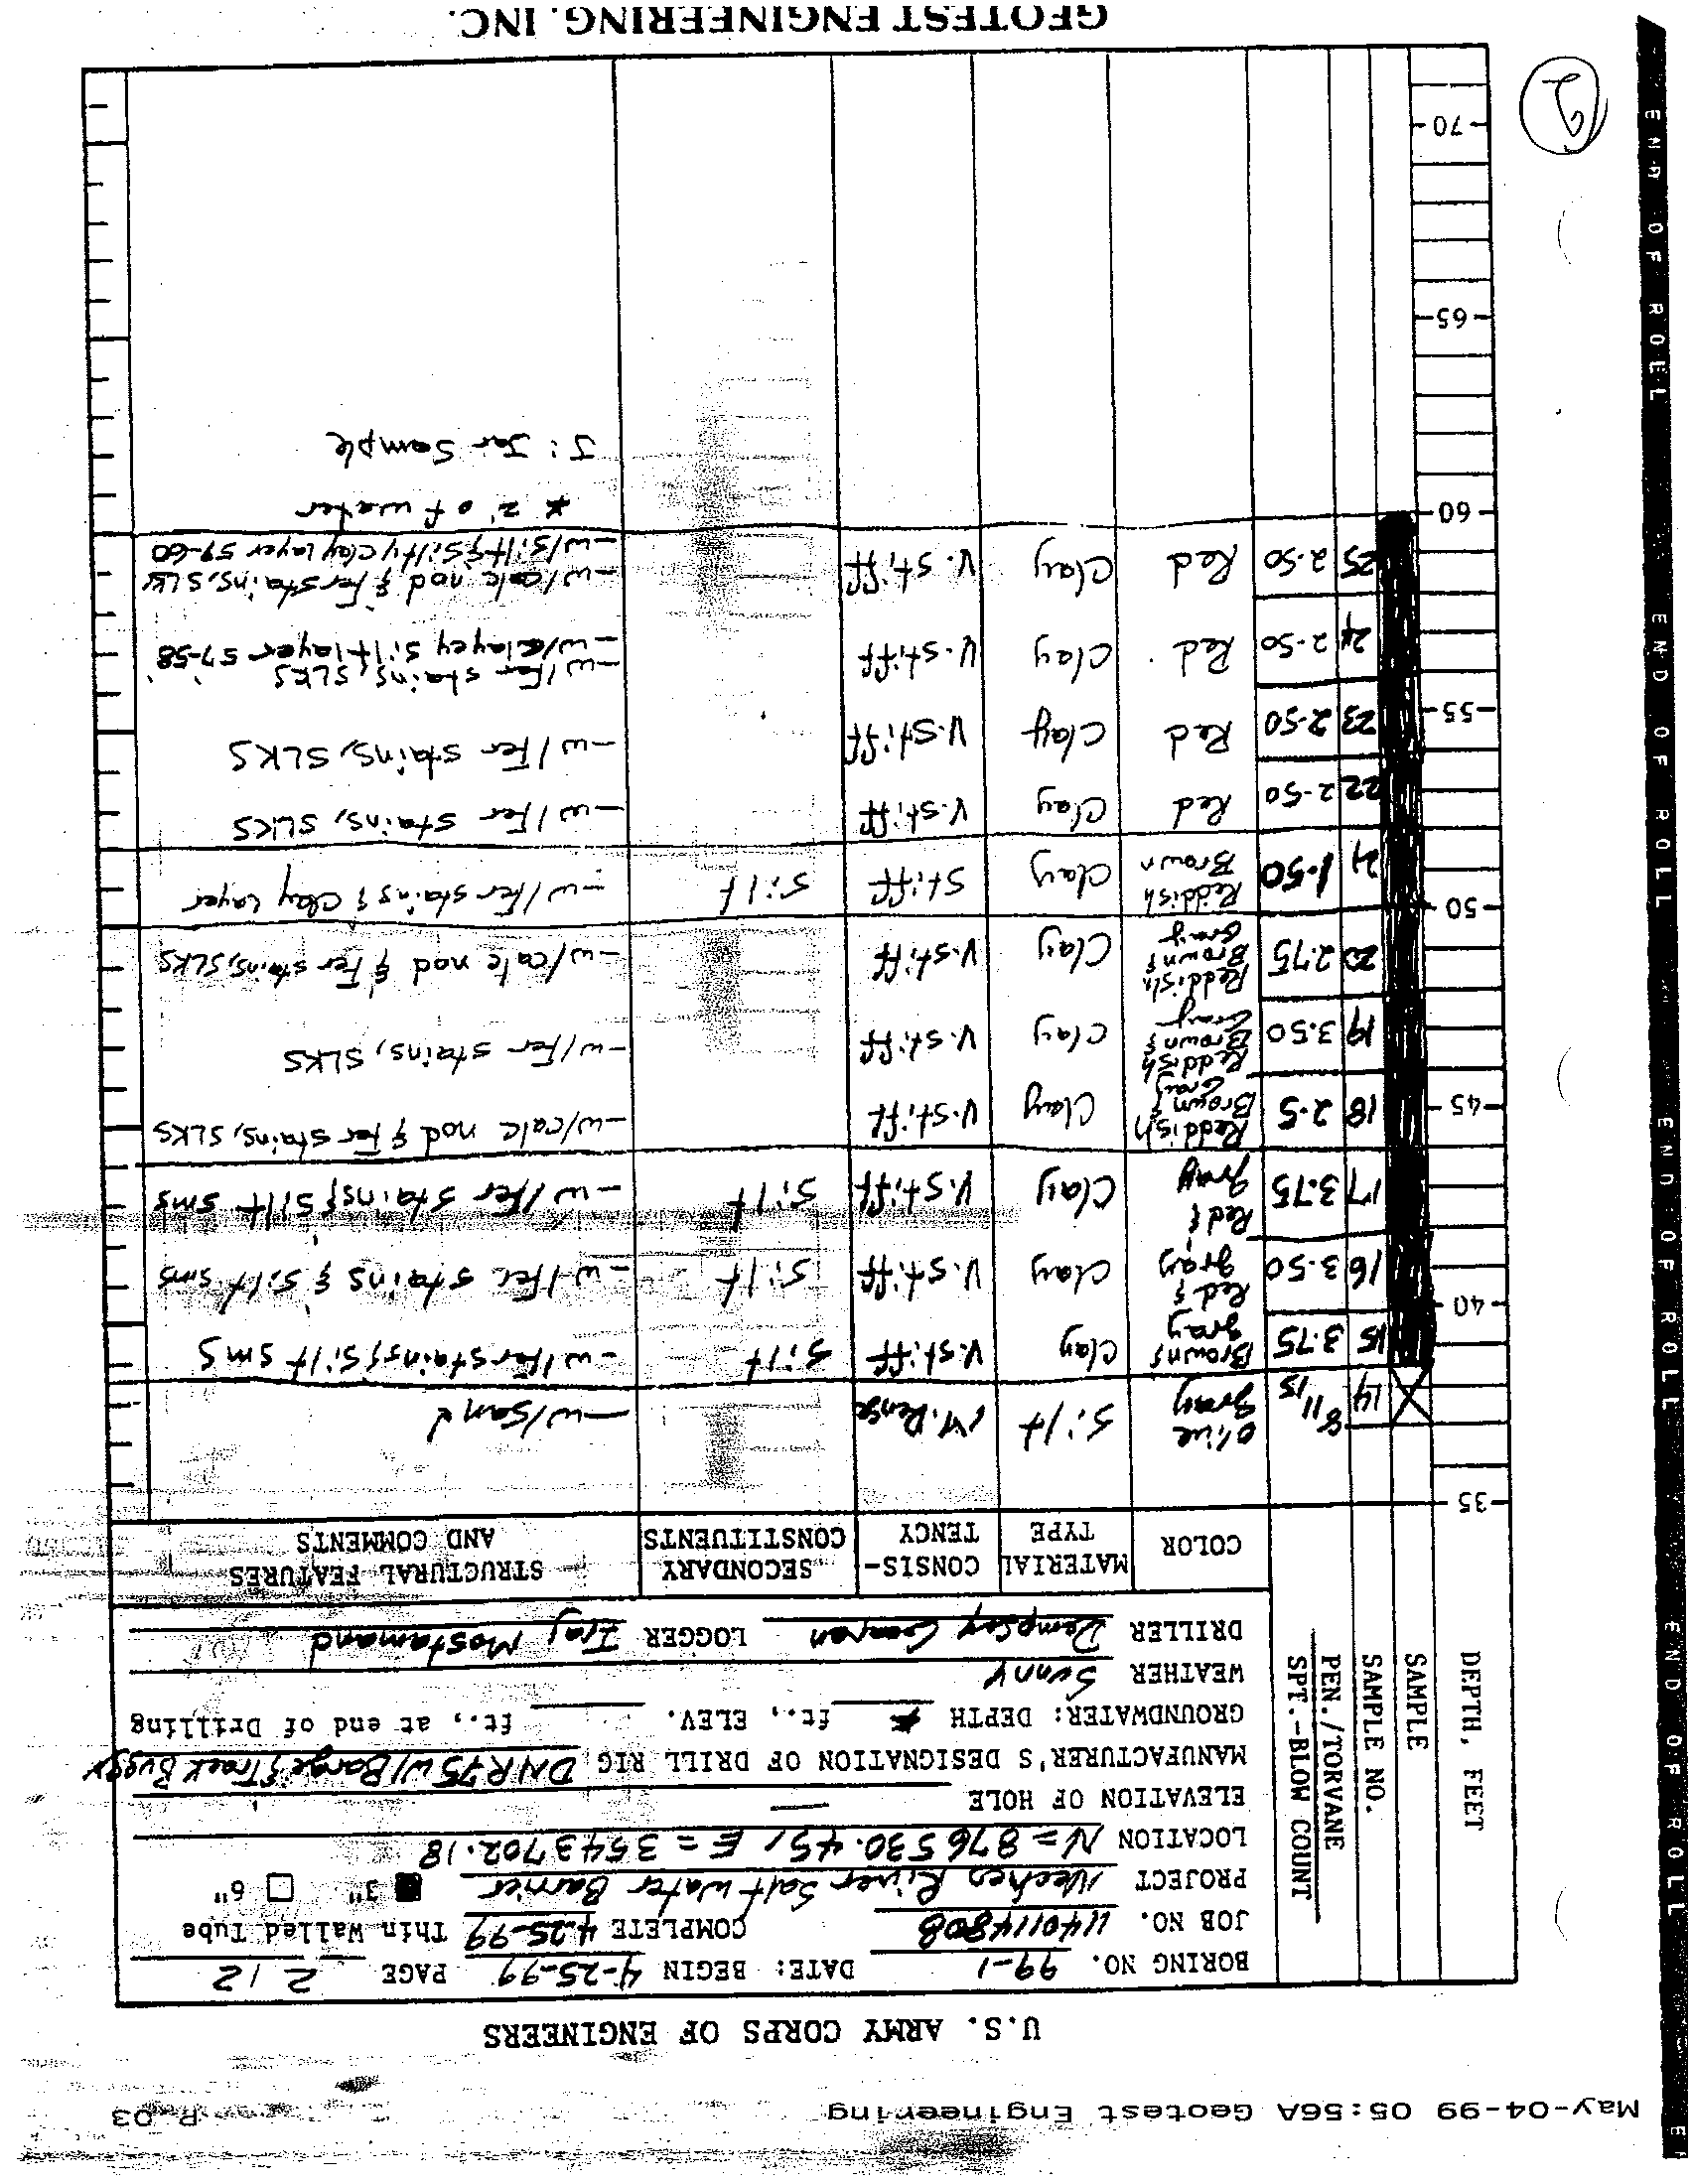 May-04-99 05:56A Geotest Engineering P.03
U.S. ARMY CORPS OF ENGINEERS
BORING NO. 99-1 DATE: BEGIN 4-25-99 PAGE 2/2
JOB NO. 1140114808 COMPLETE 4-25-99 Thin Walled Tube
PROJECT Neches River Salt water Barrier 3" 6"
LOCATION N= 876530.45, E= 3543702.18
ELEVATION OF HOLE —
MANUFACTURER'S DESIGNATION OF DRILL RIG DNR75 w/Barge & Track Buggy
GROUNDWATER: DEPTH * ft., ELEV. ft., at end of Drilling
WEATHER Sunny
DRILLER Dempsey LOGGER Iraj Mostamand
DEPTH, FEET
SAMPLE
SAMPLE NO.
PEN./TORVANE
SPT.-BLOW COUNT
COLOR
MATERIAL TYPE
CONSIS-TENCY
SECONDARY CONSTITUENTS
STRUCTURAL FEATURES AND COMMENTS
35
14 8 11 15 Olive gray Silt M. Dense —w/sand
15 3.75 Brown & gray Clay V.stiff Silt —w/fer stains & silt sms
40
16 3.50 Red & gray Clay V.stiff Silt —w/fer stains & silt sms
17 3.75 Red & gray Clay V.stiff Silt —w/fer stains & silt sms
45
18 2.5 Reddish Brown & Gray Clay V.stiff —w/calc nod & fer stains, SLKS
19 3.50 Reddish Brown & Gray Clay V.stiff —w/fer stains, SLKS
20 2.75 Reddish Brown & Gray Clay V.stiff —w/calc nod & fer stains, SLKS
50
21 1.50 Reddish Brown Clay Stiff Silt —w/fer stains & Clay Layer
22 2.50 Red Clay V.stiff —w/fer stains, SLKS
55
23 2.50 Red Clay V.stiff —w/fer stains, SLKS
24 2.50 Red Clay V.stiff —w/fer stains, SLKS
—w/Clayey silt layer 57-58
25 2.50 Red Clay V.stiff —w/calc nod & fer stains, SLKS
—w/silt & silty clay layer 59-60
60
* 2' of water
J: Jar Sample
65
70
2
GEOTEST ENGINEERING, INC.
END OF ROLL END OF ROLL END OF ROLL END OF ROLL